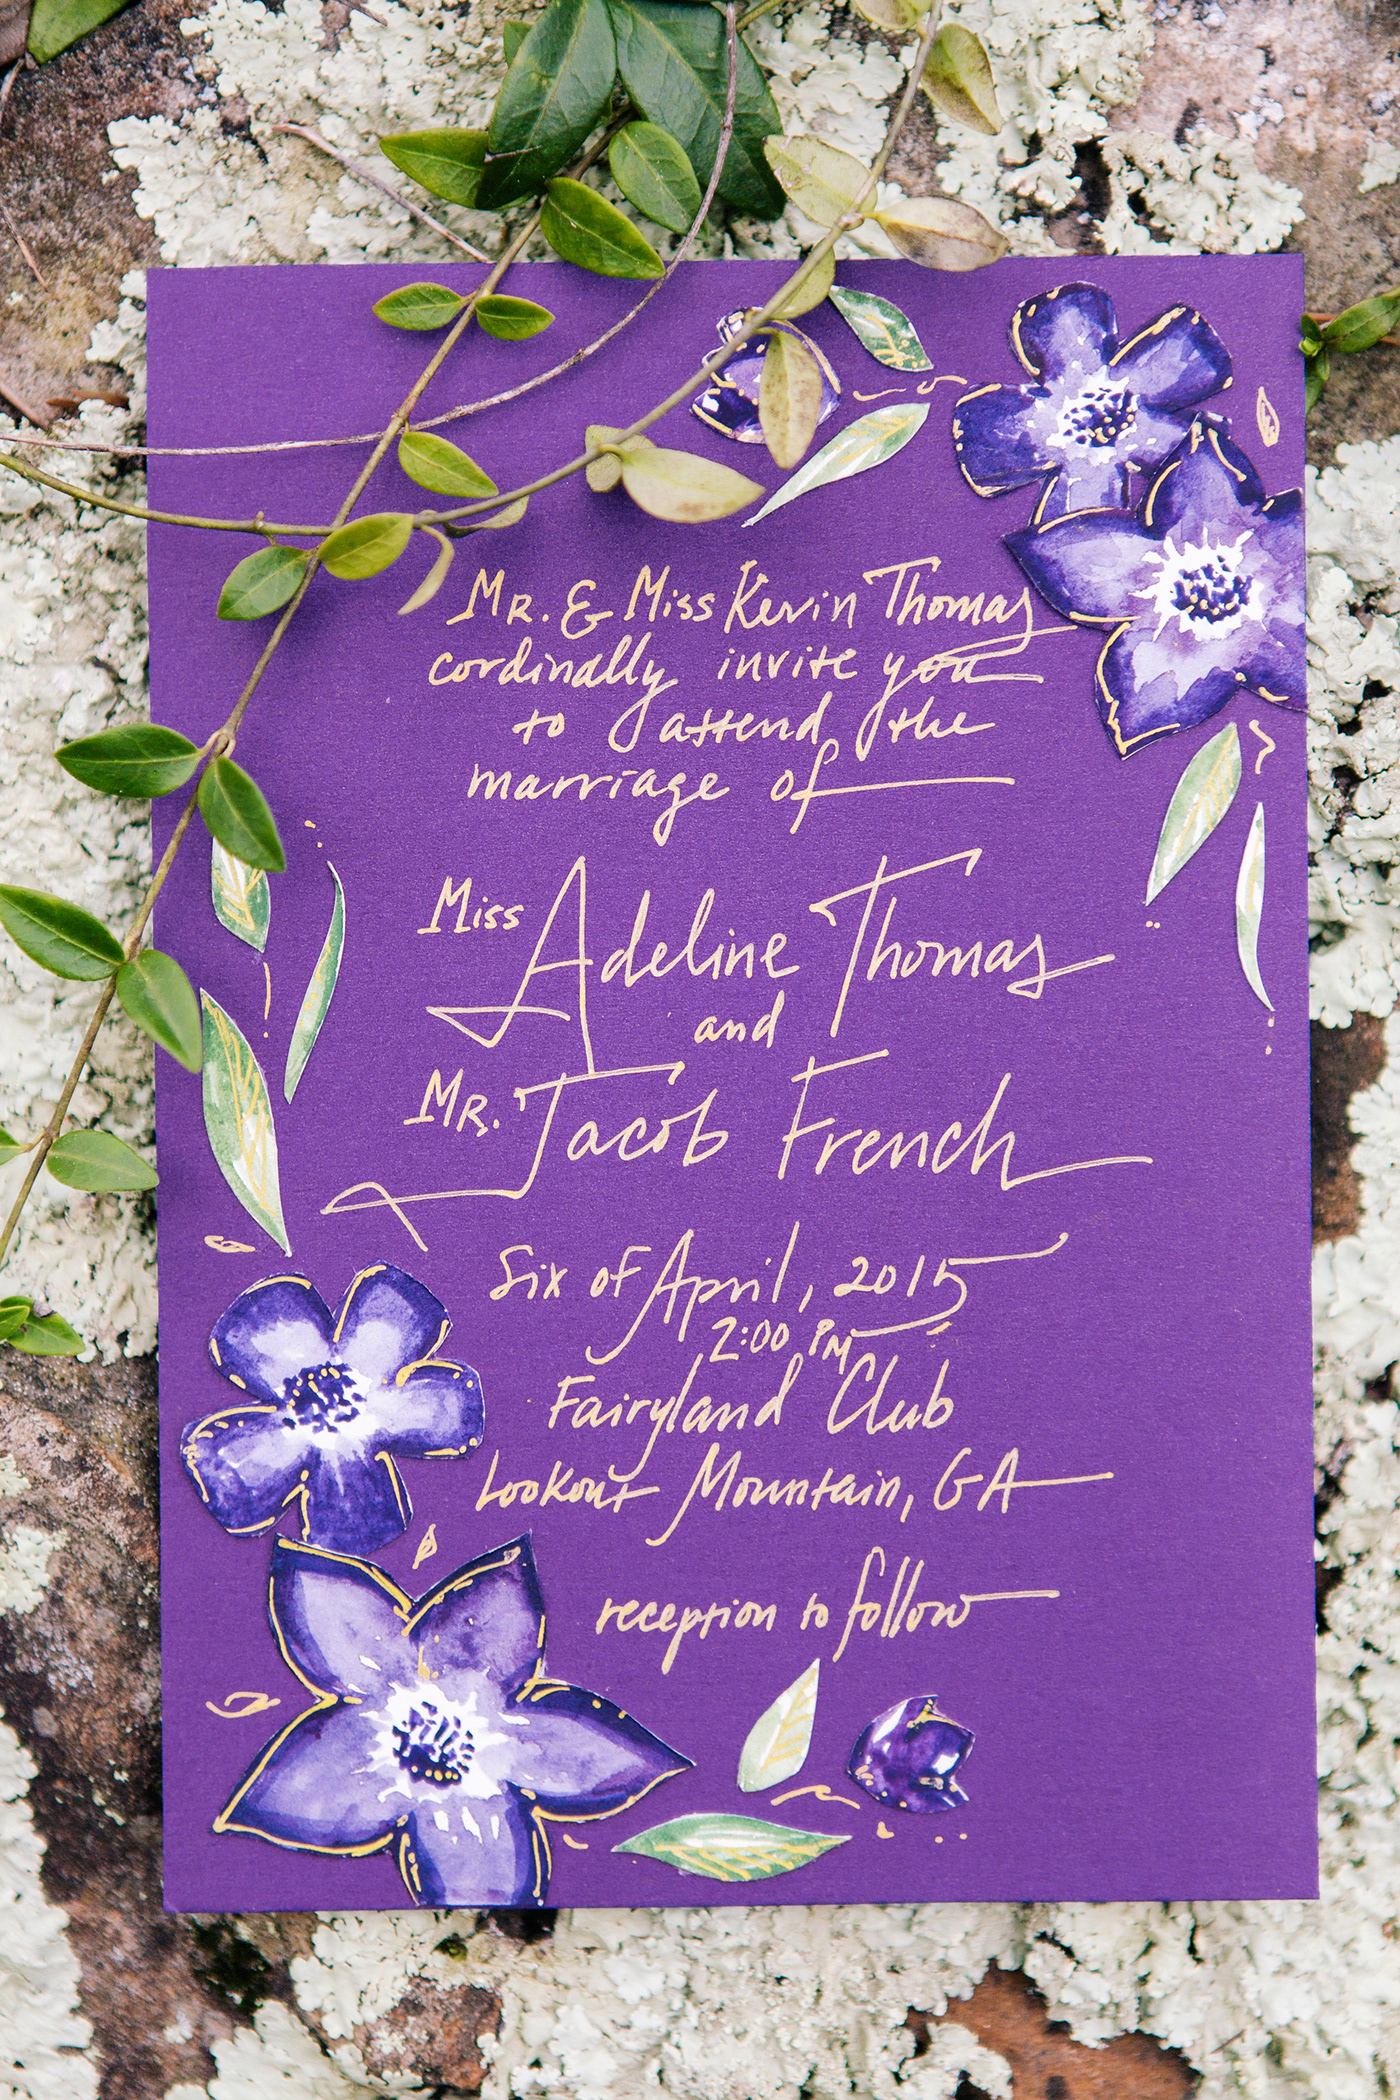 Mr. & Miss Kevin Thomas
cordinally invite you
to attend the
marriage of
Miss Adeline Thomas
and
Mr. Jacob French
Six of April, 2015
2:00 PM
Fairyland Club
Lookout Mountain, GA
reception to follow